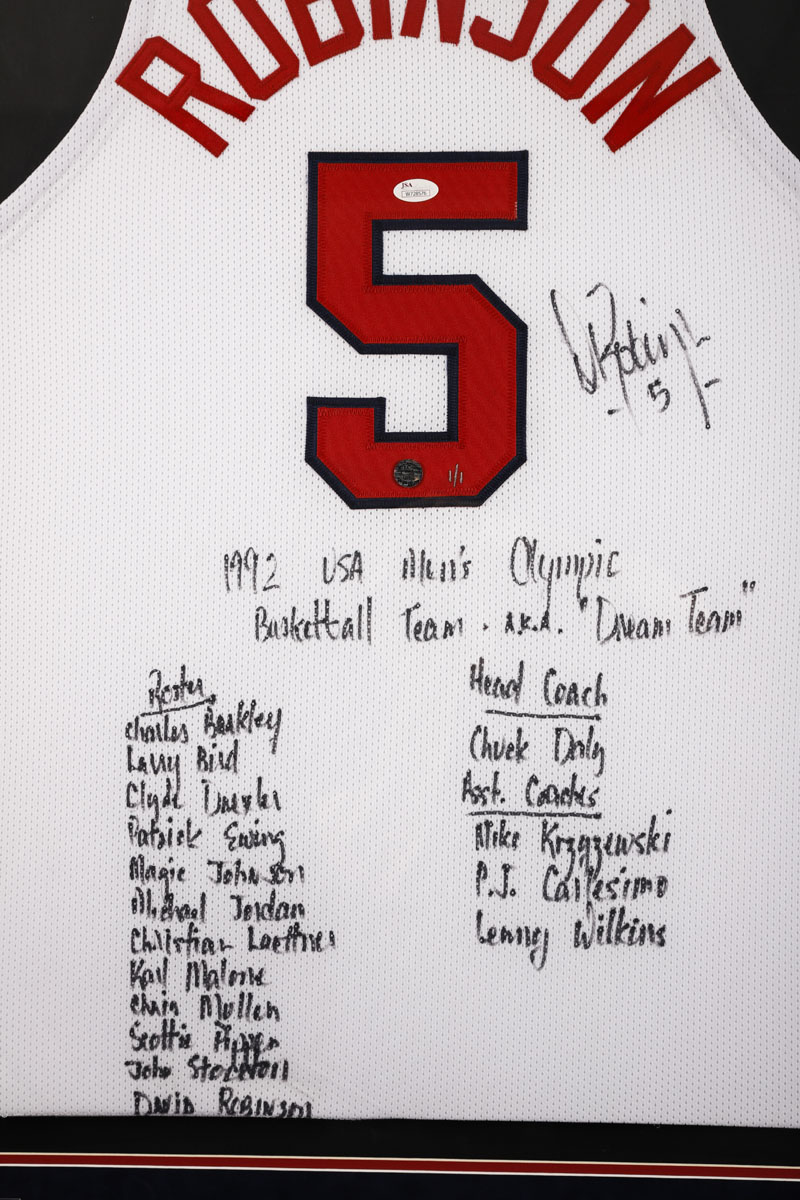 ROBINSON
JSA
5
D Robinson
5
1/1
1992 USA Men's Olympic
Basketball Team. a.k.a. "Dream Team"
Roster
Charles Barkley
Larry Bird
Clyde Drexler
Patrick Ewing
Magic Johnson
Michael Jordan
Christian Laettner
Karl Malone
Chris Mullen
Scottie Pippen
John Stockton
David Robinson
Head Coach
Chuck Daly
Asst. Coaches
Mike Krzyzewski
P.J. Carlesimo
Lenny Wilkins